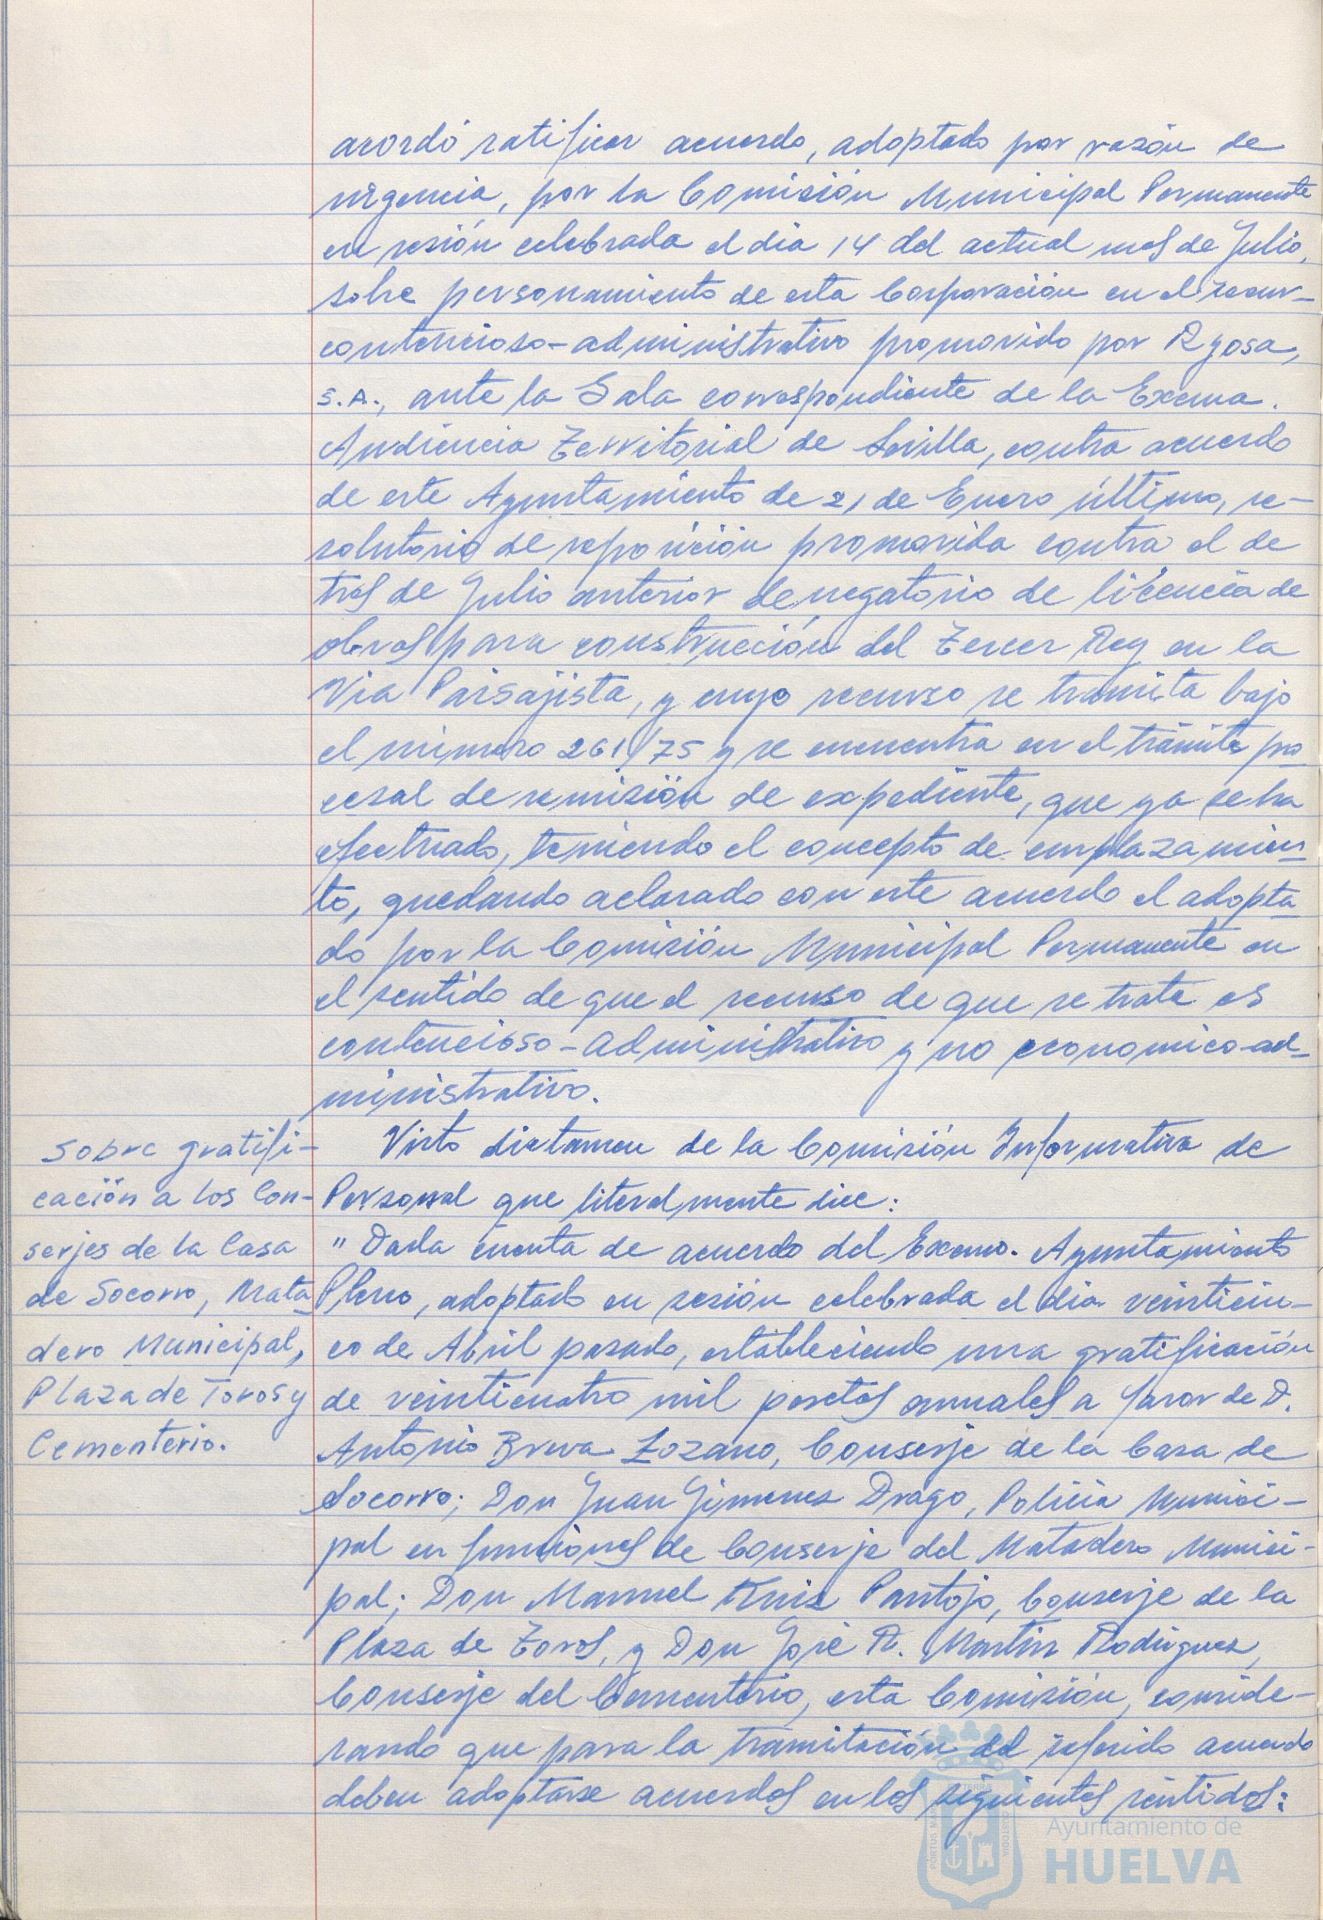 acordó ratificar acuerdo, adoptado por razón de
urgencia, por la Comisión Municipal Permanente
en sesión celebrada el dia 14 del actual mes de Julio,
sobre personamiento de esta Corporación en el recur-
contencioso-administrativo promovido por Ryosa,
S.A., ante la Sala correspondiente de la Excma.
Audiencia Territorial de Sevilla, contra acuerdo
de este Ayuntamiento de 21 de Enero último, re-
solutorio de reposición promovida contra el de
tres de Julio anterior denegatorio de licencia de
obras para construcción del Tercer Rey en la
Via Paisajista, y cuyo recurso se tramita bajo
el número 261/75 y se encuentra en el trámite pro
cesal de remisión de expediente, que ya se ha
efectuado, teniendo el concepto de emplazamien-
to, quedando aclarado con este acuerdo el adopta-
do por la Comisión Municipal Permanente en
el sentido de que el recurso de que se trata es
contencioso-administrativo y no economico-ad-
ministrativo.
Sobre gratifi-
cación a los Con-
serjes de la Casa
de Socorro, Mata-
dero Municipal,
Plaza de Toros y
Cementerio.
Visto dictamen de la Comisión Informativa de
Personal que literalmente dice:
"Dada cuenta de acuerdo del Excmo. Ayuntamiento
Pleno, adoptado en sesión celebrada el dia veinticin-
co de Abril pasado, estableciendo una gratificación
de veinticuatro mil pesetas anuales a favor de D.
Antonio Brva Lozano, Conserje de la Casa de
Socorro; Don Juan Gimenez Drago, Policia Munici-
pal en funciones de Conserje del Matadero Munici-
pal; Don Manuel Ruiz Pantojo, Conserje de la
Plaza de Toros, y Don José R. Martin Rodriguez,
Conserje del Cementerio, esta Comisión, conside-
rando que para la tramitación del referido acuerdo
deben adoptarse acuerdos en los siguientes sentidos:
Ayuntamiento de
HUELVA